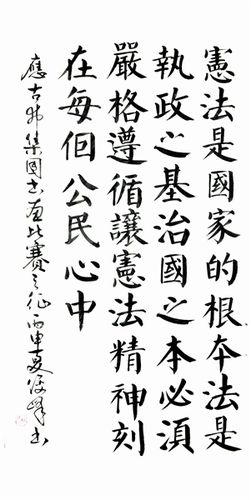 憲法是國家的根本法是
執政之基治國之本必須
嚴格遵循讓憲法精神刻
在每個公民心中
應古井集團書畫比賽之征丙申夏俊峰書